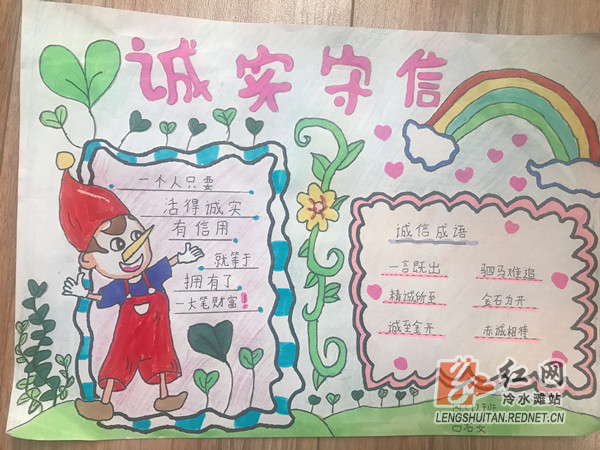 诚实守信
一个人只要
活得诚实
有信用
就等于
拥有了
一大笔财富!
诚信成语
一言既出 驷马难追
精诚所至 金石为开
诚至金开 赤诚相待
红网
冷水滩站
LENGSHUITAN.REDNET.CN